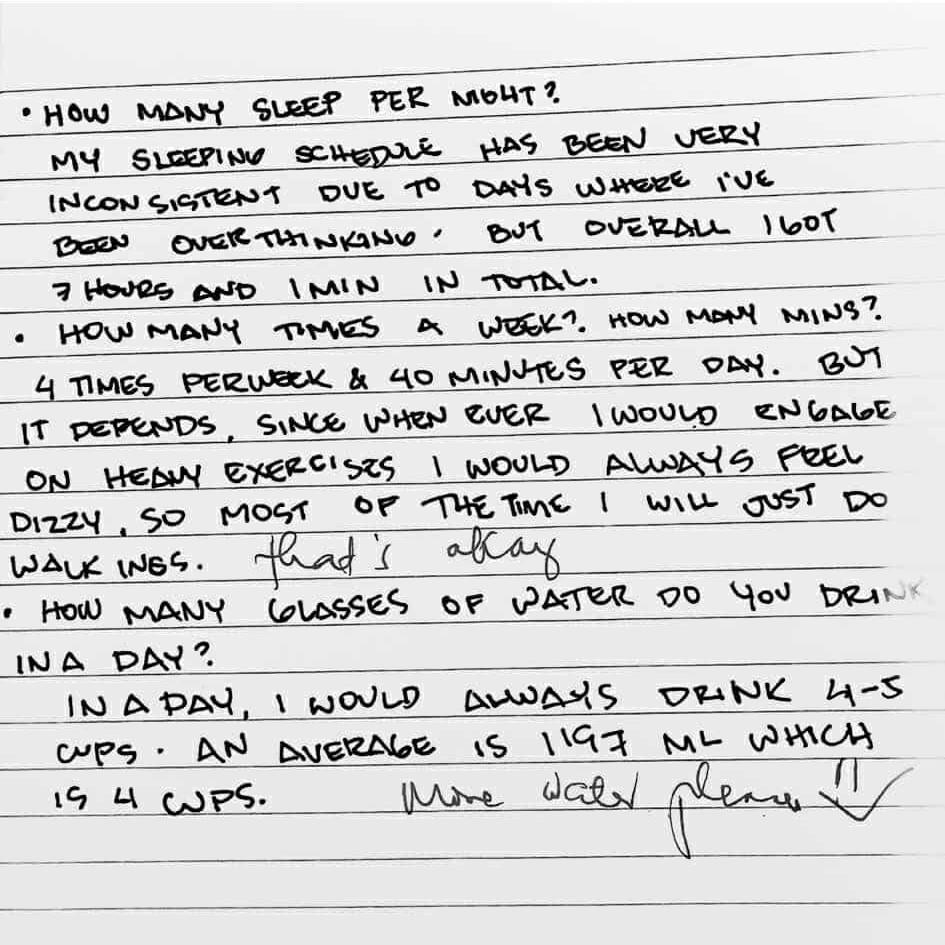 • HOW MANY SLEEP PER NIGHT?
MY SLEEPING SCHEDULE HAS BEEN VERY
INCONSISTENT DUE TO DAYS WHERE I'VE
BEEN OVERTHINKING. BUT OVERALL I GOT
7 HOURS AND 1 MIN IN TOTAL.
• HOW MANY TIMES A WEEK?. HOW MANY MINS?
4 TIMES PERWEEK & 40 MINUTES PER DAY. BUT
IT DEPENDS, SINCE WHEN EVER I WOULD ENGAGE
ON HEAVY EXERCISES I WOULD ALWAYS FEEL
DIZZY, SO MOST OF THE TIME I WILL JUST DO
WALKINGS. that's okay
• HOW MANY GLASSES OF WATER DO YOU DRINK
IN A DAY?
IN A DAY, I WOULD ALWAYS DRINK 4-5
CUPS. AN AVERAGE IS 1197 ML WHICH
IS 4 CUPS. More water please !!